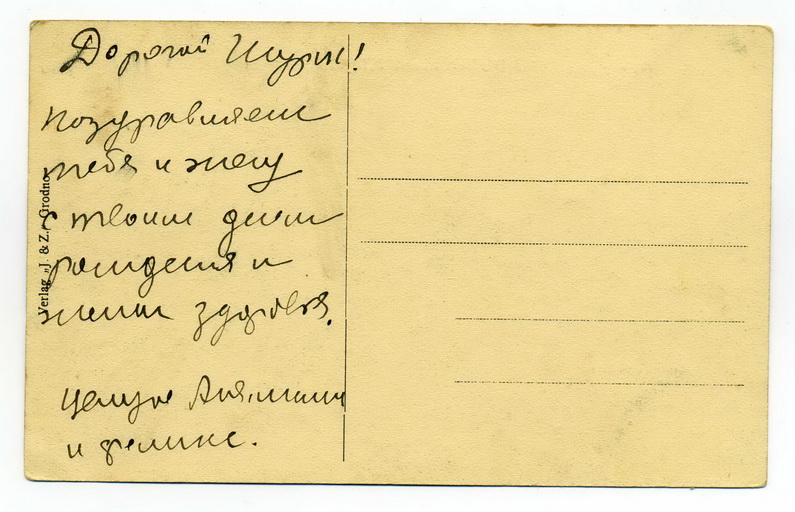 Дорогой Шурик!
поздравляем
тебя и маму
с твоим днем
рождения и
желаем здоровья.
целуем Аня,
и Феликс.
Verlag „J. & Z.", Grodno